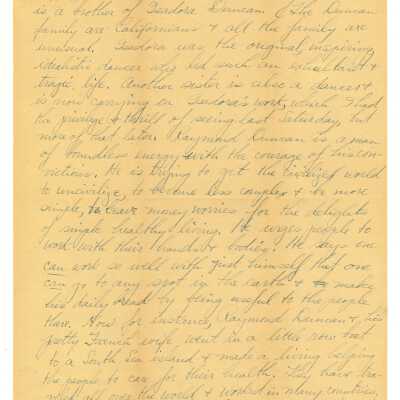 is a brother of Isadora Duncan (The Duncan
family are Californians & all the family are
unusual. Isadora was the original, inspiring,
idealistic dancer who led such an exhuberant &
tragic life. Another sister is also a dancer &
is now carrying on Isadora's work, which I had
the privilege & thrill of seeing last Saturday, but
more of that later. Raymond Duncan is a man
of boundless energy with the courage of his con-
victions. He is trying to get the civilized world
to uncivilize, to become less complex & be more
simple, to leave money worries for the delights
of simple healthy living. He urges people to
work with their hands & bodies. He says one
can work so well with just himself that one
can go to any spot in the earth & make
his daily bread by being useful to the people
there. Now for instance, Raymond Duncan & his
pretty French wife, went in a little row boat
to a South Sea island & made a living helping
the people to care for their health. They have tra-
velled all over the world & worked in many countries,